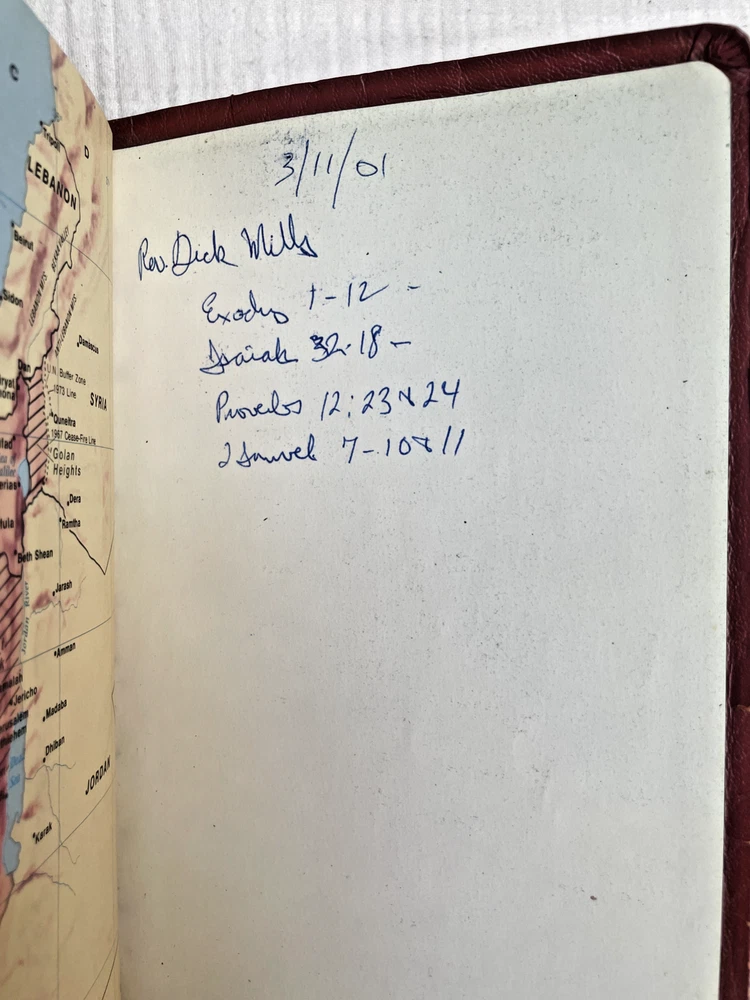 3/11/01
Rev. Dick Mills
Exodus 1-12 -
Isaiah 32-18 -
Proverbs 12:23 & 24
2 Samuel 7-10 & 11
C
D
Tripoli
LEBANON
Beirut
BEKAA VALLEY
LEBANON MTS.
ANTI-LEBANON MTS.
Sidon
Damascus
Dan
U.N. Buffer Zone
1973 Line
SYRIA
Quneitra
1967 Cease-Fire Line
Golan
Heights
Dera
Ramtha
Beth Shean
Jarash
Jordan River
Amman
Jericho
Madaba
Dhiban
JORDAN
Karak